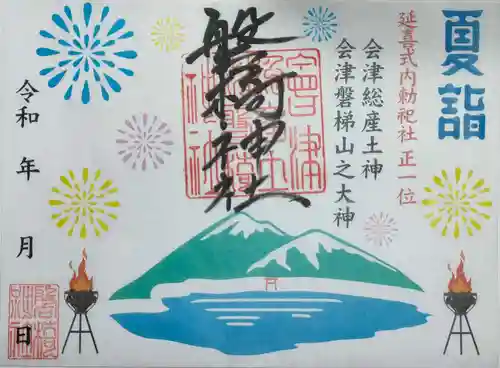 夏詣
延喜式内勅祀社 正一位
会津総産土神
会津磐梯山之大神
磐椅神社
令和 年 月 日